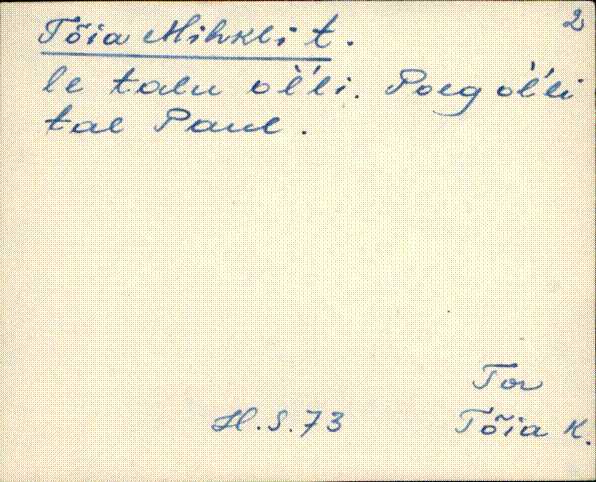 2
Tõia Mihkli t.
le talu ol̀'li. Poeg ol̀'li
tal Paul.
Tor
H.S.73 Tõia K.